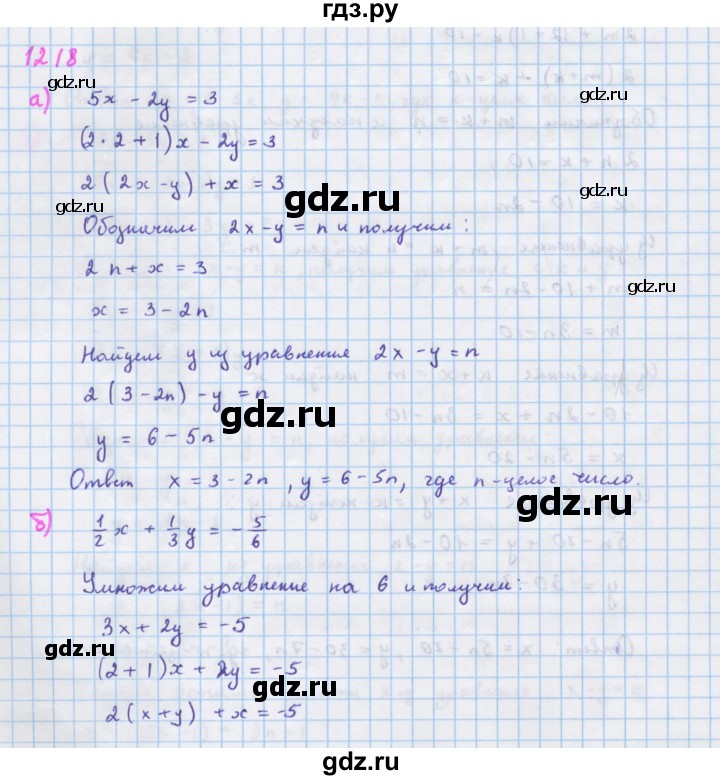 гдз.ру
1218
а) 5x - 2y = 3
(2·2+1)x - 2y = 3
2(2x-y) + x = 3
gdz.ru
gdz.ru
gdz.ru
Обозначим 2x-y = n и получим:
2n + x = 3
gdz.ru
x = 3-2n
Найдем y из уравнения 2x-y = n
2(3-2n) - y = n
gdz.ru
y = 6-5n
Ответ x = 3-2n, y = 6-5n, где n-целое число.
gdz.ru
б) 1/2 x + 1/3 y = -5/6
Умножим уравнение на 6 и получим:
3x + 2y = -5
gdz.ru
(2+1)x + 2y = -5
gdz.ru
2(x+y) + x = -5
gdz.ru